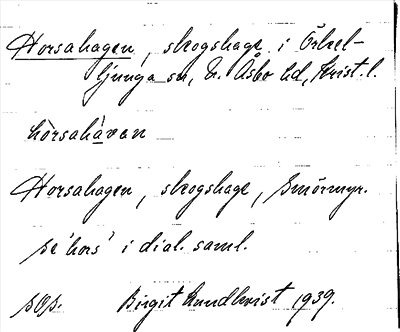 Horsahagen, skogshage i Örkel-
ljunga sn, N. Åsbo hd, Krist. l.
hòrsahàvan
Horsahagen, skogshage, Smörmyr.
se 'hors' i dial. saml.
sop. Birgit Lundkvist 1939.